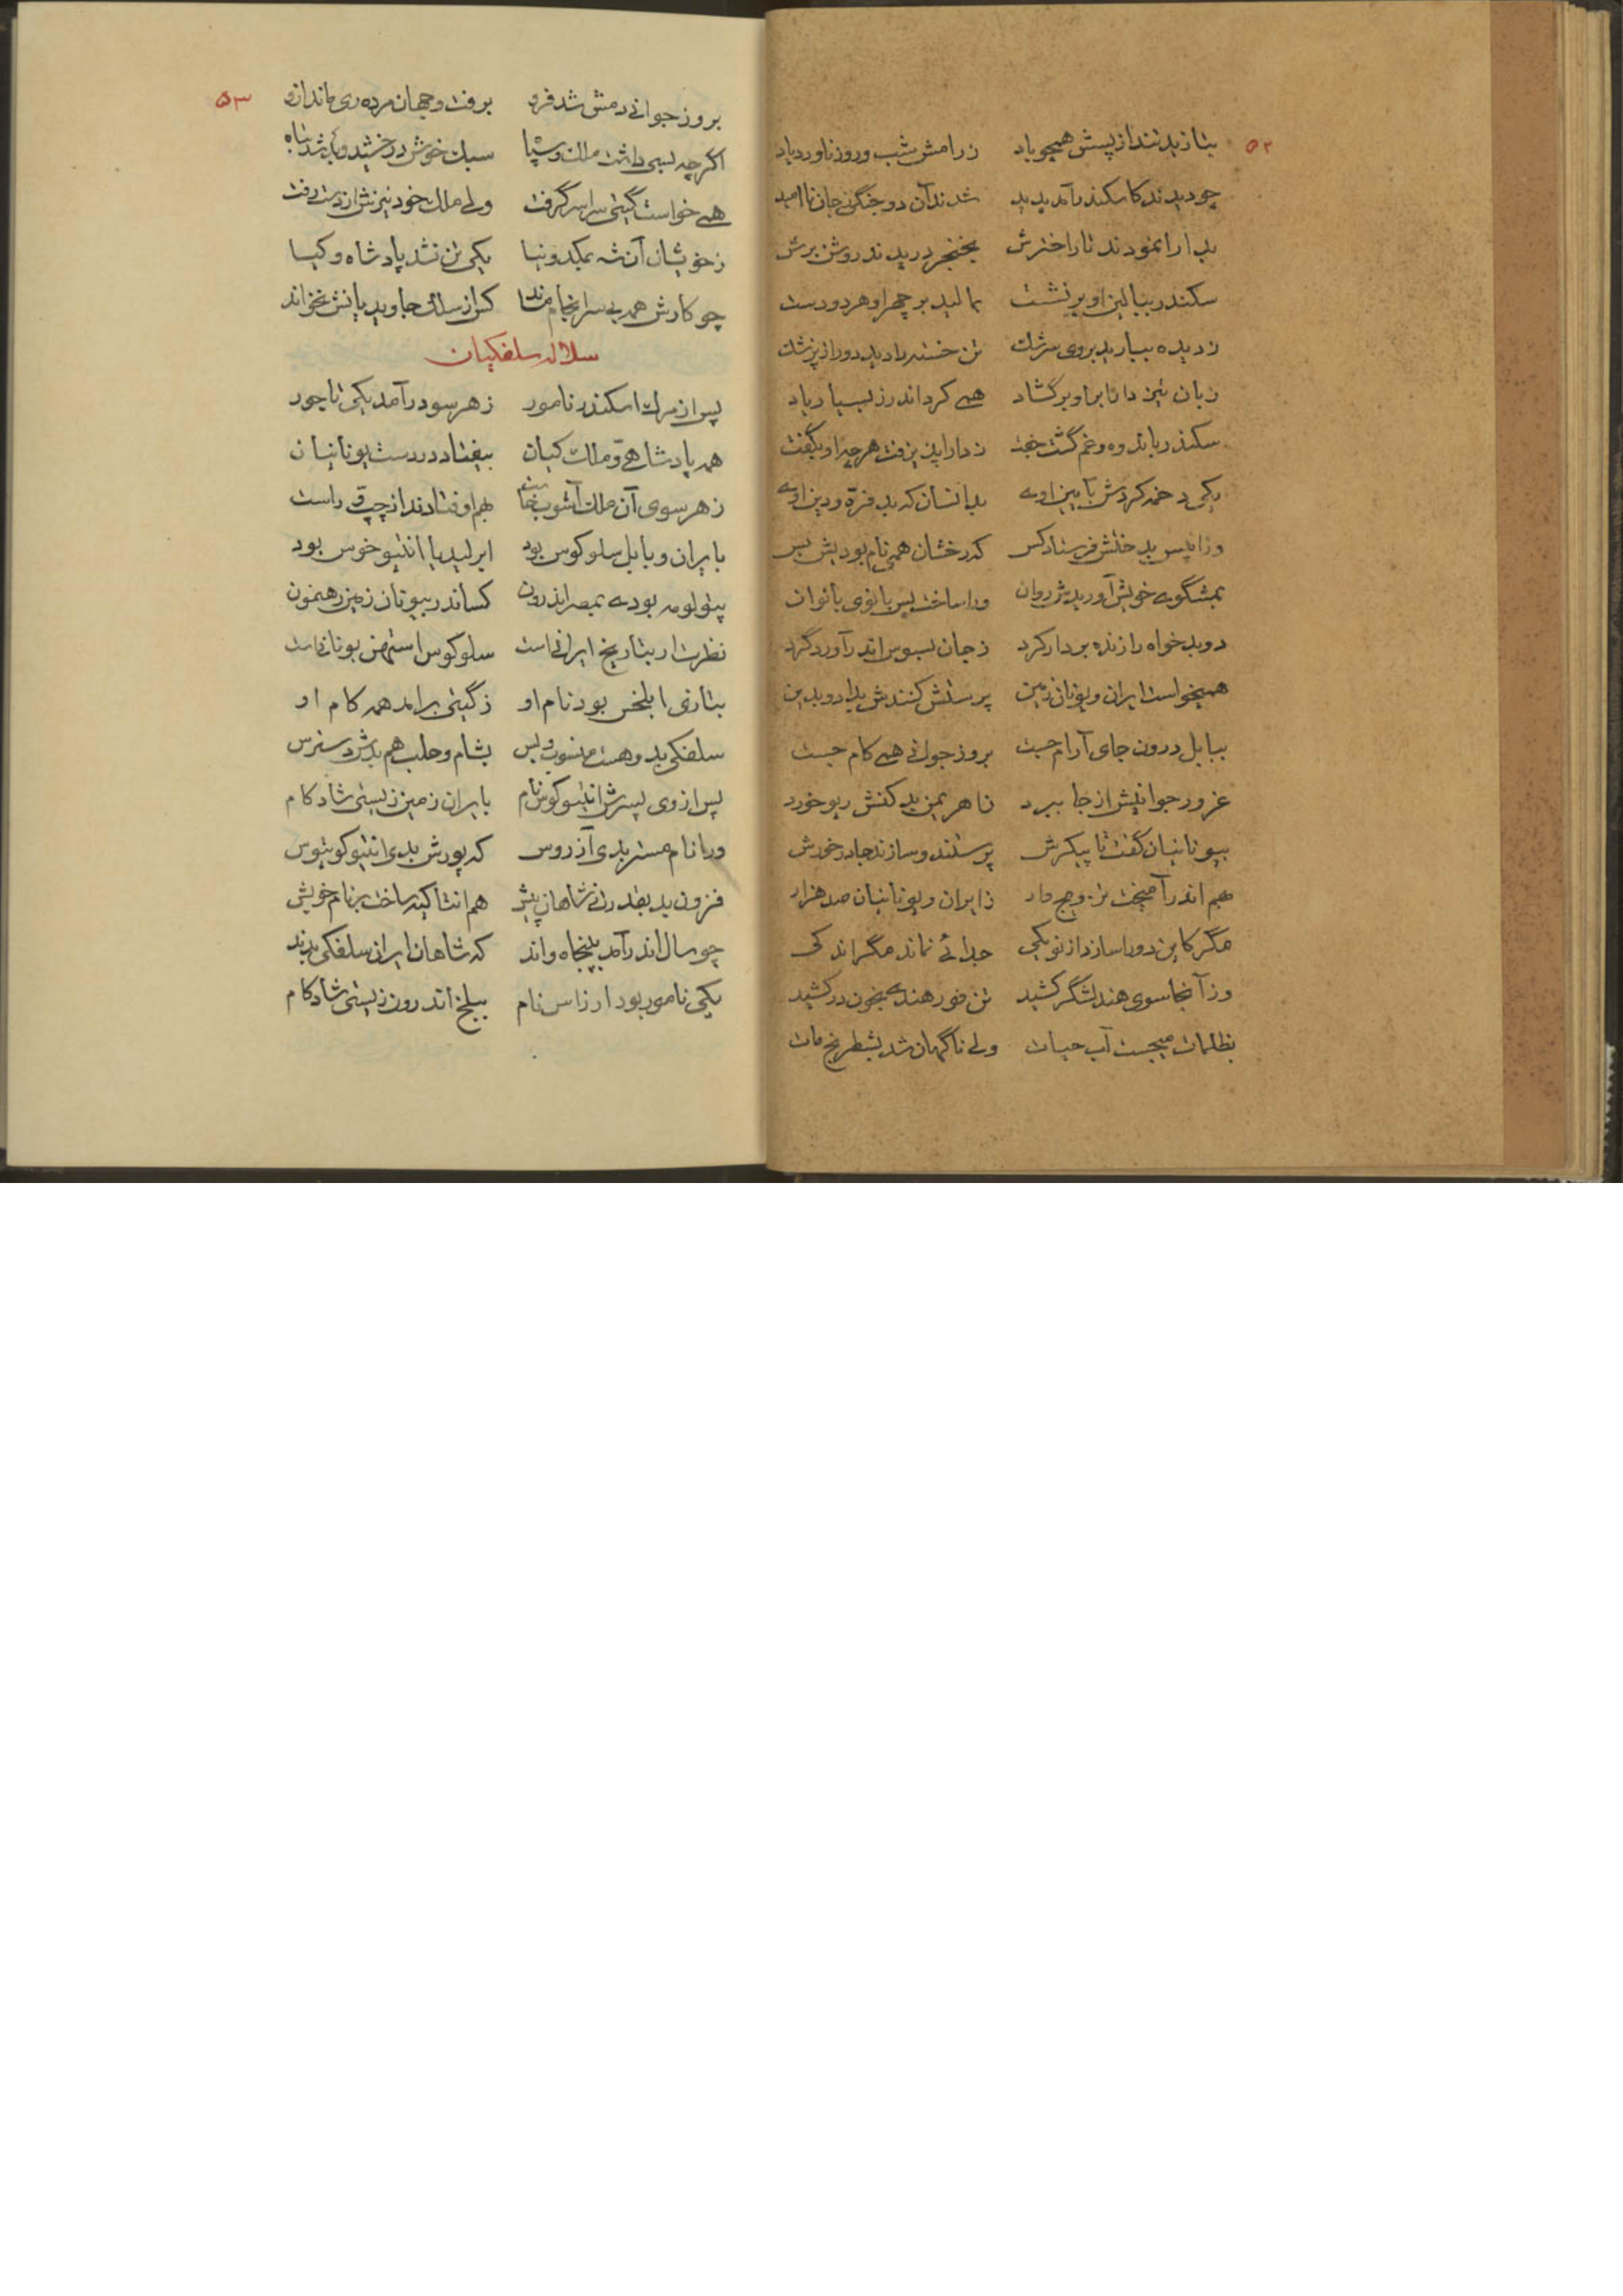 ۵۲
بتازید تند از پسش همچو باد زرامش شب و روز ناورد یاد
چو دیدند کاسکندر آمد پدید شدند آن دو جنگی جان ناامید
بدارا نمودند تاراخترش بخنجر دریدند روشن برش
سکندر ببالین او برنشست بمالید بر چهر او هر دو دست
ز دیده ببارید بروی سرشک تن خسته را دید دور از پزشک
زبان تیز دارا بر او برگشاد همی کرد اندرز بسیار یاد
سکندر باندوه و غم گشت جفت ز دارا پذیرفت هر چه او بگفت
یکی دخمه کردش بآیین اوی بدانسان که بد فرّه و دین اوی
وزانپس بد ختش فرستاد کس که رخشان همی نام بودیش بس
بمشگوی خویش آوریدش روان ورا ساخت پس بانوی بانوان
دو بدخواه را زنده بردار کرد ز جان بسوس اندر آورد گرد
همیخواست ایران و یونان زمین پرستش کنندش بدارو بدین
ببابل درون جای آرام جست بروز جوانی همی کام جست
غرور جوانیش از جا ببرد ز اهریمن بد کنش ریو خورد
بیونانیان گفت تا پیکرش پرستند و سازند جادر خورش
بهم اندر آمیخت تزویج وار ز ایران و یونانیان صد هزار
مگر کاین دو را سازد از نو یکی جدائی نماند مگر اندکی
وز آنجا سوی هند لشگر کشید تن فور هندی بخون در کشید
بظلمات میجست آب حیات ولی ناگهان شد بشطرنج مات
۵۳
بروز جوانی دمش شد فرو برفت و جهان مرده ری ماند ازو
اگرچه بسی داشت ملک و سپاه سبک خوش درخشید و شد تباه
همی خواست گیتی سراسر گرفت ولی ملک خود نیزش از دست رفت
ز خویشان آن شه بمکدونیا یکی تن نشد پادشاه و کیا
چو کارش همه بی سرانجام ماند کس از سلک جاوید یانش نخواند
سلاله سلفکیان
پس از مرگ اسکندر نامور ز هر سو درآمد یکی تاجور
همه پادشاهی و ملک کیان بیفتاد در دست یونانیان
ز هر سوی آن ملک آشوب خاست بهم اوفتادند از چپ و راست
بایران و بابل سلوکوس بود ابر لیدیا انتیوخوس بود
پتولومه بودی بمصر اندرون کساندر بیونان زمین رهنمون
نظرت ار بتاریخ ایرانی است سلوکوس اسمش یونانی است
بتازی ابلخس بود نام او ز گیتی برآمد همه کام او
سلفکی بدو هست منسوب و بس بشام و حلب هم بدش دسترس
پس از وی پسرش انتیوکوس نام بایران زمین زیستی شادکام
ورا نام مستر بدی آذروس که پورش بدی انتیوکوتیوس
فزون بد بقدرت ز شاهان پیش هم انتاکیه ساخت بر نام خویش
چو سال اندر آمد بپنجاه و اند که شاهان ایران سلفکی بدند
یکی نامور بود ارزاس نام ببلخ اندرون زیستی شادکام